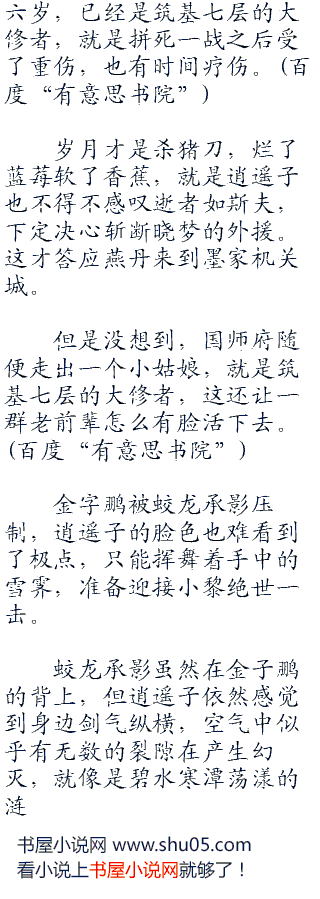 六岁，已经是筑基七层的大
修者，就是拼死一战之后受
了重伤，也有时间疗伤。(百
度“有意思书院”)
岁月才是杀猪刀，烂了
蓝莓软了香蕉，就是逍遥子
也不得不感叹逝者如斯夫，
下定决心斩断晓梦的外援。
这才答应燕丹来到墨家机关
城。
但是没想到，国师府随
便走出一个小姑娘，就是筑
基七层的大修者，这还让一
群老前辈怎么有脸活下去。
(百度“有意思书院”)
金字鹏被蛟龙承影压
制，逍遥子的脸色也难看到
了极点，只能挥舞着手中的
雪霁，准备迎接小黎绝世一
击。
蛟龙承影虽然在金子鹏
的背上，但逍遥子依然感觉
到身边剑气纵横，空气中似
乎有无数的裂隙在产生幻
灭，就像是碧水寒潭荡漾的
涟
书屋小说网 www.shu05.com
看小说上书屋小说网就够了！